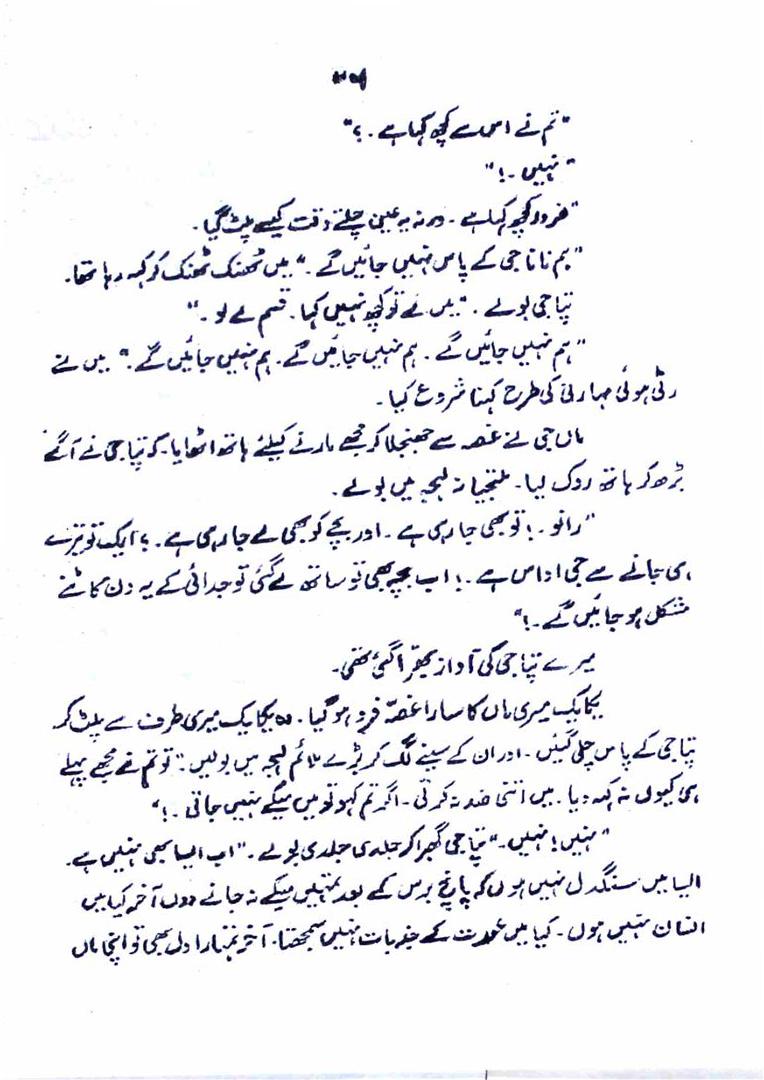 "تم نے اس سے کچھ کہا ہے ۔؟"
"نہیں ۔!"
"ضرور کچھ کہا ہے ۔ ورنہ یہ عین چلتے وقت کیسے پلٹ گیا ۔
"ہم نانا جی کے پاس نہیں جائیں گے ۔" میں ٹھنک ٹھنک کر کہہ رہا تھا۔
پتا جی بولے ۔ "میں نے تو کچھ نہیں کہا ۔ قسم لے لو ۔"
"ہم نہیں جائیں گے ۔ ہم نہیں جائیں گے ۔ ہم نہیں جائیں گے ۔" میں نے
رٹی ہوئی کی طرح کہنا شروع کیا ۔
ماں جی نے غصہ سے جھنجلا کر مجھے مارنے کیلئے ہاتھ اٹھایا ۔ کہ پتا جی نے آگے
بڑھ کر ہاتھ روک لیا ۔ ملتجیانہ لہجہ میں بولے ۔
"رانو ۔! تو بھی جا رہی ہے ۔ اور بچے کو بھی لے جا رہی ہے ۔؟ ایک تو تیرے
ہی جانے سے جی اداس ہے ۔! اب بچہ بھی تو ساتھ لے گئی تو جدائی کے یہ دن کاٹنے
مشکل ہو جائیں گے ۔!"
میرے پتا جی کی آواز بھرّا گئی تھی ۔
یکایک میری ماں کا سارا غصّہ فرو ہو گیا ۔ وہ یکایک میری طرف سے پلٹ کر
پتا جی کے پاس چلی گئیں ۔ اور ان کے سینے لگ کر بڑے ملائم لہجہ میں بولیں ۔ "تو تم نے مجھے پہلے
ہی کیوں نہ کہہ دیا ۔ میں اتنی ضد نہ کرتی ۔ اگر تم کہو تو میں میکے نہیں جاتی ۔!"
"نہیں! نہیں ۔" پتا جی گھبرا کر جلدی جلدی بولے ۔ "اب ایسا بھی نہیں ہے ۔
ایسا میں سنگدل نہیں ہوں کہ پانچ برس کے بعد تمہیں میکے نہ جانے دوں آخر کیا میں
انسان نہیں ہوں ۔ کیا میں عورت کے جذبات نہیں سمجھتا ۔ آخر تمہارا دل بھی تو اپنی ماں